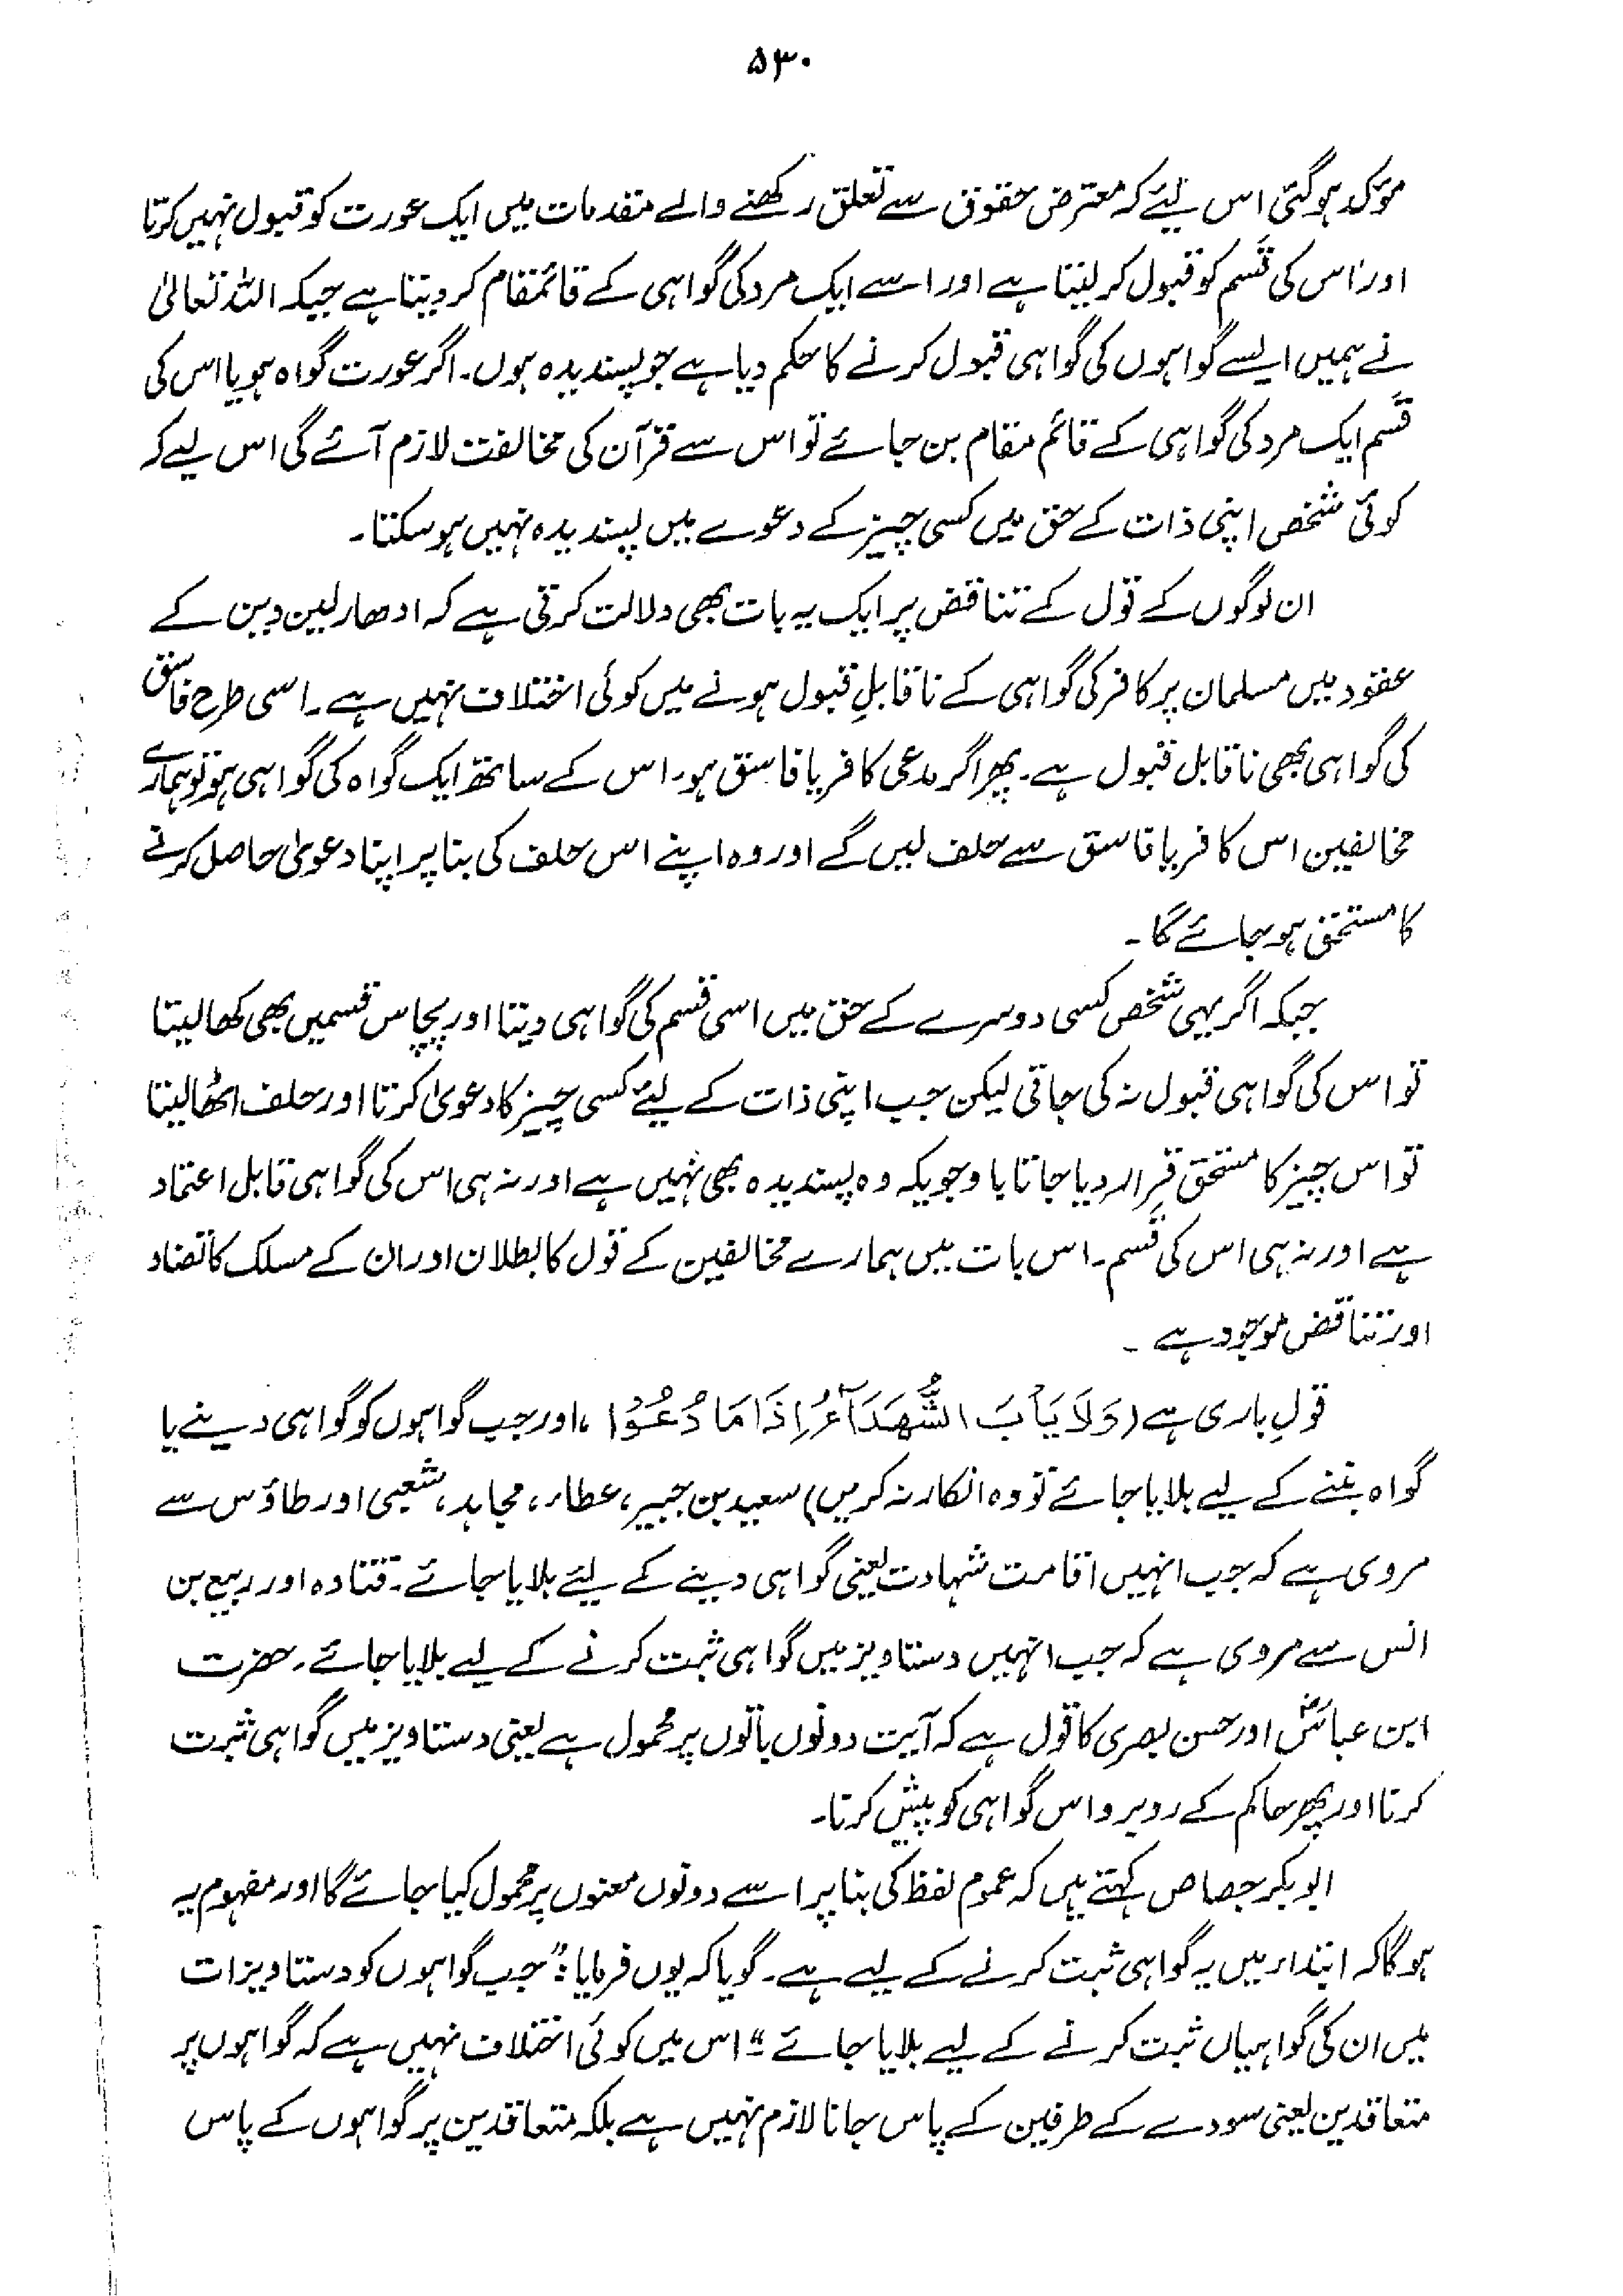 ۵۳۰
مؤکد ہوگئی اس لیئے کہ معترض حقوق سے تعلق رکھنے والے مقدمات میں ایک عورت کو قبول نہیں کرتا
اور اس کی قَسم کو قبول کر لیتا ہے اور اسے ایک مرد کی گواہی کے قائمقام کر دیتا ہے جبکہ اللہ تعالیٰ
نے ہمیں ایسے گواہوں کی گواہی قبول کرنے کا حکم دیا ہے جو پسندیدہ ہوں۔ اگر عورت گواہ ہو یا اس کی
قَسم ایک مرد کی گواہی کے قائم مقام بن جائے تو اس سے قرآن کی مخالفت لازم آئے گی اس لیے کہ
کوئی شخص اپنی ذات کے حق میں کسی چیز کے دعوے میں پسندیدہ نہیں ہو سکتا۔
ان لوگوں کے قول کے تناقض پر ایک یہ بات بھی دلالت کرتی ہے کہ ادھار لین دین کے
عقود میں مسلمان پر کافر کی گواہی کے ناقابلِ قبول ہونے میں کوئی اختلاف نہیں ہے۔ اسی طرح فاسق
کی گواہی بھی ناقابل قبول ہے۔ پھر اگر مدعی کافر یا فاسق ہو۔ اس کے ساتھ ایک گواہ کی گواہی ہو تو ہمارے
مخالفین اس کافر یا فاسق سے حلف لیں گے اور وہ اپنے اس حلف کی بنا پر اپنا دعویٰ حاصل کرنے
کا مستحق ہو جائے گا۔
جبکہ اگر یہی شخص کسی دوسرے کے حق میں اسی قسم کی گواہی دیتا اور پچاس قسمیں بھی کھا لیتا
تو اس کی گواہی قبول نہ کی جاتی لیکن جب اپنی ذات کے لیئے کسی چیز کا دعویٰ کرتا اور حلف اٹھا لیتا
تو اس چیز کا مستحق قرار دیا جاتا باوجویکہ وہ پسندیدہ بھی نہیں ہے اور نہ ہی اس کی گواہی قابل اعتماد
ہے اور نہ ہی اس کی قَسم۔ اس بات میں ہمارے مخالفین کے قول کا بطلان اور ان کے مسلک کا تضاد
اور تناقض موجود ہے ۔
قولِ باری ہے (وَلَا يَأْبَ الشُّهَدَآءُ اِذَا مَا دُعُوْا ، اور جب گواہوں کو گواہی دینے یا
گواہ بننے کے لیے بلایا جائے تو وہ انکار نہ کریں) سعید بن جبیر، عطاء، مجاہد، شعبی اور طاؤس سے
مروی ہے کہ جب انہیں اقامت شہادت یعنی گواہی دینے کے لیئے بلایا جائے۔ قتادہ اور ربیع بن
انس سے مروی ہے کہ جب انہیں دستاویز میں گواہی ثبت کرنے کے لیے بلایا جائے۔ حضرت
ابن عباسؓ اور حسن بصری کا قول ہے کہ آیت دونوں باتوں پر محمول ہے یعنی دستاویز میں گواہی ثبت
کرنا اور پھر حاکم کے روبرو اس گواہی کو پیش کرنا۔
ابوبکر جصاص کہتے ہیں کہ عموم لفظ کی بنا پر اسے دونوں معنوں پر محمول کیا جائے گا اور مفہوم یہ
ہوگا کہ ابتداء میں یہ گواہی ثبت کرنے کے لیے ہے۔ گویا کہ یوں فرمایا: "جب گواہوں کو دستاویزات
میں ان کی گواہیاں ثبت کرنے کے لیے بلایا جائے" اس میں کوئی اختلاف نہیں ہے کہ گواہوں پر
متعاقدین یعنی سودے کے طرفین کے پاس جانا لازم نہیں ہے بلکہ متعاقدین پر گواہوں کے پاس